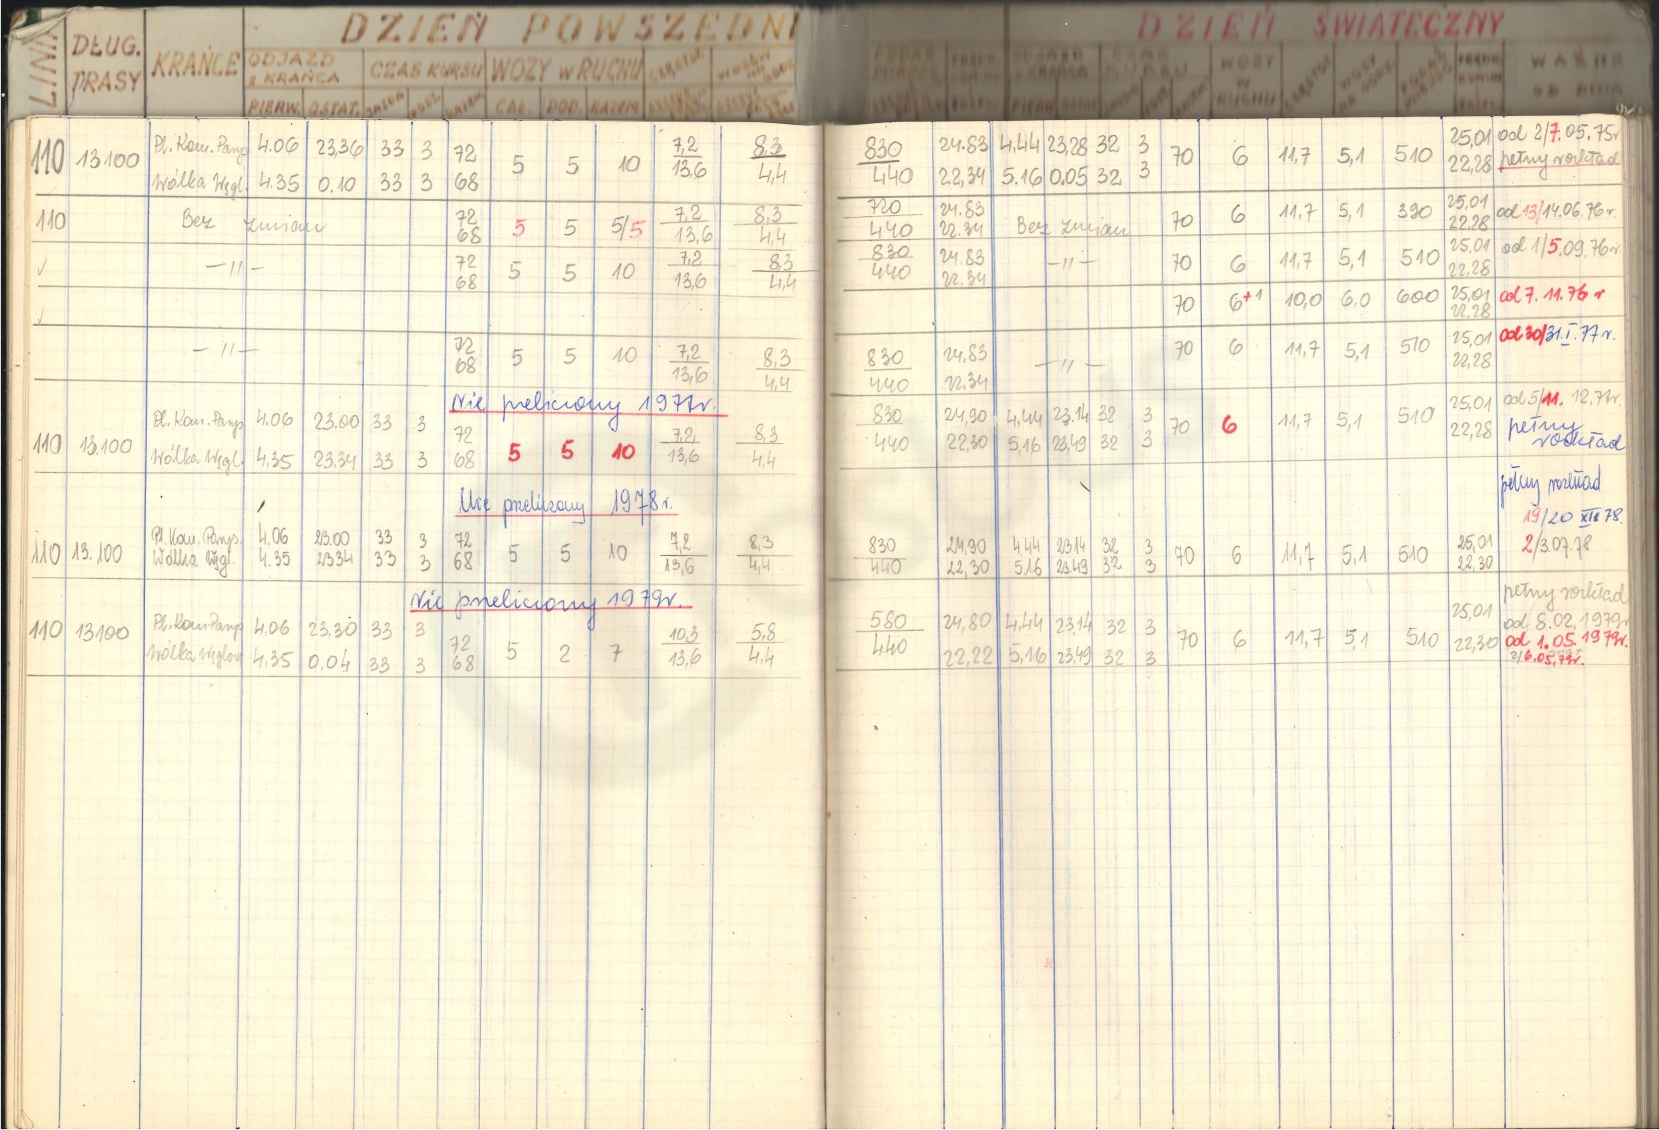 DZIEŃ POWSZEDNI DZIEŃ ŚWIĄTECZNY
LINIA DŁUG. TRASY KRAŃCE ODJAZD z KRAŃCA CZAS KURSU WOZY w RUCHU WOZY W RUCHU WAŻNE
PIERW. OSTAT. JAZDA RAZEM CAŁ. DOD. RAZEM
110 13.100 Pl. Kom. Parys 4.06 23,36 33 3 72 5 5 10 7,2 8,3 830 24.83 4.44 23,28 32 3 70 6 11,7 5,1 510 25,01 od 2/7.05.75r
Wólka Węgl. 4.35 0.10 33 3 68 13,6 4,4 440 22,34 5.16 0.05 32 3 22,28 pełny rozkład
110 Bez zmian 72 5 5 5/5 7,2 8,3 720 24.83 Bez zmian 70 6 11,7 5,1 390 25,01 od 13/14.06.76r.
68 13,6 4,4 440 22.34 22,28
√ —„— 72 5 5 10 7,2 8,3 830 24.83 —„— 70 6 11,7 5,1 510 25,01 od 1/5.09.76r.
68 13,6 4,4 440 22.34 22,28
√ 70 6+1 10,0 6,0 600 25,01 od 7.11.76 r
22,28
—„— 72 5 5 10 7,2 8,3 830 24.83 —„— 70 6 11,7 5,1 510 25,01 od 30/31.I.77r.
68 13,6 4,4 440 22.34 22,28
Nie przeliczony 1977r.
110 13.100 Pl. Kom. Parys 4.06 23.00 33 3 72 5 5 10 7,2 8,3 830 24,90 4,44 23.14 32 3 70 6 11,7 5,1 510 25,01 od 5/11.12.77r.
Wólka Węgl. 4,35 23.34 33 3 68 13,6 4,4 440 22,30 5,16 23,49 32 3 22,28 pełny rozkład
Nie przeliczony 1978r.
pełny rozkład
19/20 XII 78.
110 13.100 Pl. Kom. Parys. 4,06 23.00 33 3 72 5 5 10 7,2 8,3 830 24,90 4.44 23.14 32 3 70 6 11,7 5,1 510 25,01 2/3.07.78
Wólka Węgl. 4.35 23.34 33 3 68 13,6 4,4 440 22,30 5.16 23.49 32 3 22,30
Nie przeliczony 1979r.
pełny rozkład
110 13.100 Pl. Kom Parys 4.06 23,30 33 3 72 5 2 7 10,3 5,8 580 24,80 4.44 23,14 32 3 70 6 11,7 5,1 510 25,01 od 8.02.1979r
Wólka Węglow 4.35 0,04 33 3 68 13,6 4,4 440 22,22 5,16 23,49 32 3 22,30 od 1.05.1979r.
2/6.05.79r.